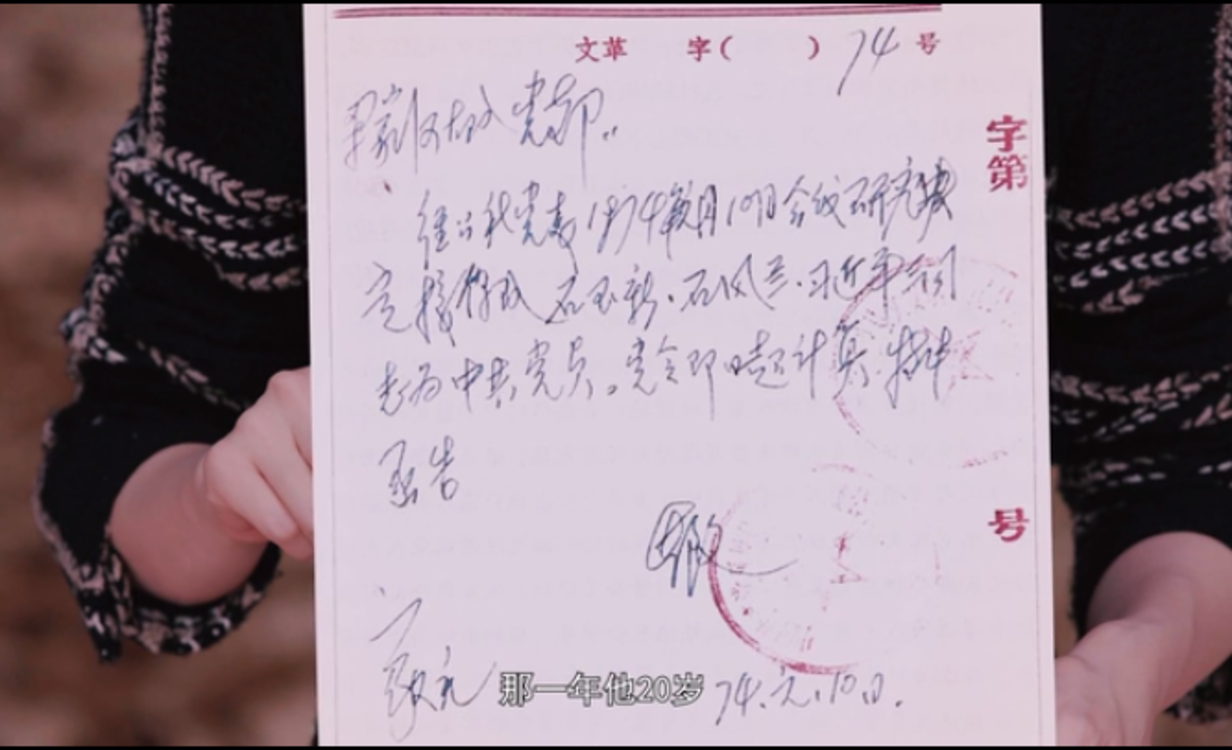 文革 字( ) 74 号
字第
梁家河大队党部
经公社党委1974年月10日会议研究决
定接 石玉新、石风兰、习近平三同
志为中共党员。党令即日起计算 特此
函告
号
那一年他20岁
74.元.10日.